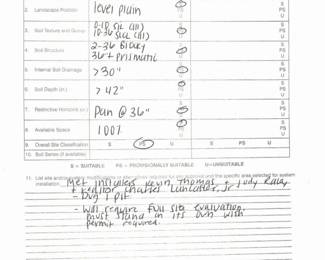 2. Landscape Position level plain S PS U
3. Soil Texture and Group 0-10 SiL (III) 10-36 SiCL (III) S PS U
4. Soil Structure 2-36 Blocky 36+ Prismatic S PS U
5. Internal Soil Drainage >30" S PS U
6. Soil Depth (in.) >42" S PS U
7. Restrictive Horizons (in.) Pan @ 36" S PS U
8. Available Space 100% S PS U
9. Overall Site Classification S PS U S PS U
10. Soil Series (if available)
S = SUITABLE PS = PROVISIONALLY SUITABLE U = UNSUITABLE
11. List site and modifications or alternatives required for and the specific area selected for system
installation.
Met installers Kevin, Thomas, + Judy
+ Realtor Charles Lancaster, Jr
- Dug 1 pit
- Will require full site evaluation.
must stand on its own wish
permit required.